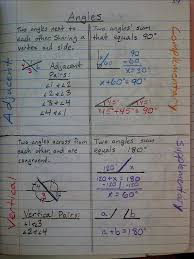 Angles
Adjacent
Two angles next to
each other sharing a
vertex and side.
Adjacent
Pairs:
∠1 & ∠2
∠2 & ∠3
∠3 & ∠4
Complementary
Two angles' sum
that equals 90°
x + 60° = 90°
45°
45°
45° + 45° = 90°
Vertical
Two angles across from
each other, and are
congruent.
Vertical Pairs:
∠1 & ∠3
∠2 & ∠4
Supplementary
Two angles' sum
equals 180°
120
120 + x = 180
x = 60°
a / b
a + b = 180°